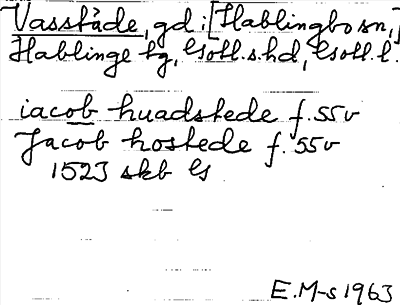 Vasstäde, gd: [Hablingbo sn,]
Hablinge tg, Gotl. s. hd, Gotl. l.
iacob huadstede f. 55v
Jacob hostede f. 55v
1523 skb G
E. M-s 1963